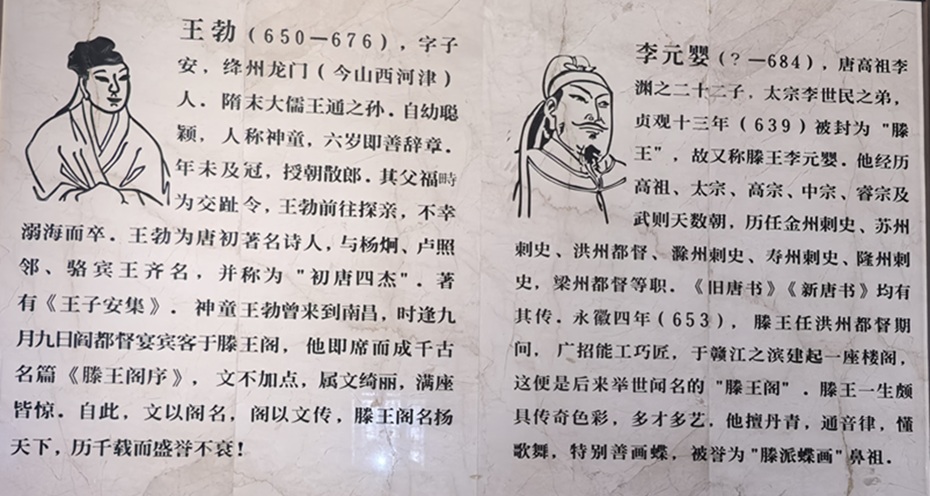 王勃（650—676），字子
安，绛州龙门（今山西河津）
人．隋末大儒王通之孙．自幼聪
颖，人称神童，六岁即善辞章．
年未及冠，授朝散郎．其父福畤
为交趾令，王勃前往探亲，不幸
溺海而卒．王勃为唐初著名诗人，与杨炯、卢照
邻、骆宾王齐名，并称为"初唐四杰"．著
有《王子安集》．神童王勃曾来到南昌，时逢九
月九日阎都督宴宾客于滕王阁，他即席而成千古
名篇《滕王阁序》，文不加点，属文绮丽，满座
皆惊．自此，文以阁名，阁以文传，滕王阁名扬
天下，历千载而盛誉不衰！
李元婴（？—684），唐高祖李
渊之二十二子．太宗李世民之弟，
贞观十三年（639）被封为"滕
王"，故又称滕王李元婴．他经历
高祖、太宗、高宗、中宗、睿宗及
武则天数朝，历任金州刺史、苏州
刺史、洪州都督、滁州刺史、寿州刺史、隆州刺
史，梁州都督等职．《旧唐书》《新唐书》均有
其传．永徽四年（653），滕王任洪州都督期
间，广招能工巧匠，于赣江之滨建起一座楼阁，
这便是后来举世闻名的"滕王阁"．滕王一生颇
具传奇色彩，多才多艺．他擅丹青，通音律，懂
歌舞，特别善画蝶，被誉为"滕派蝶画"鼻祖．